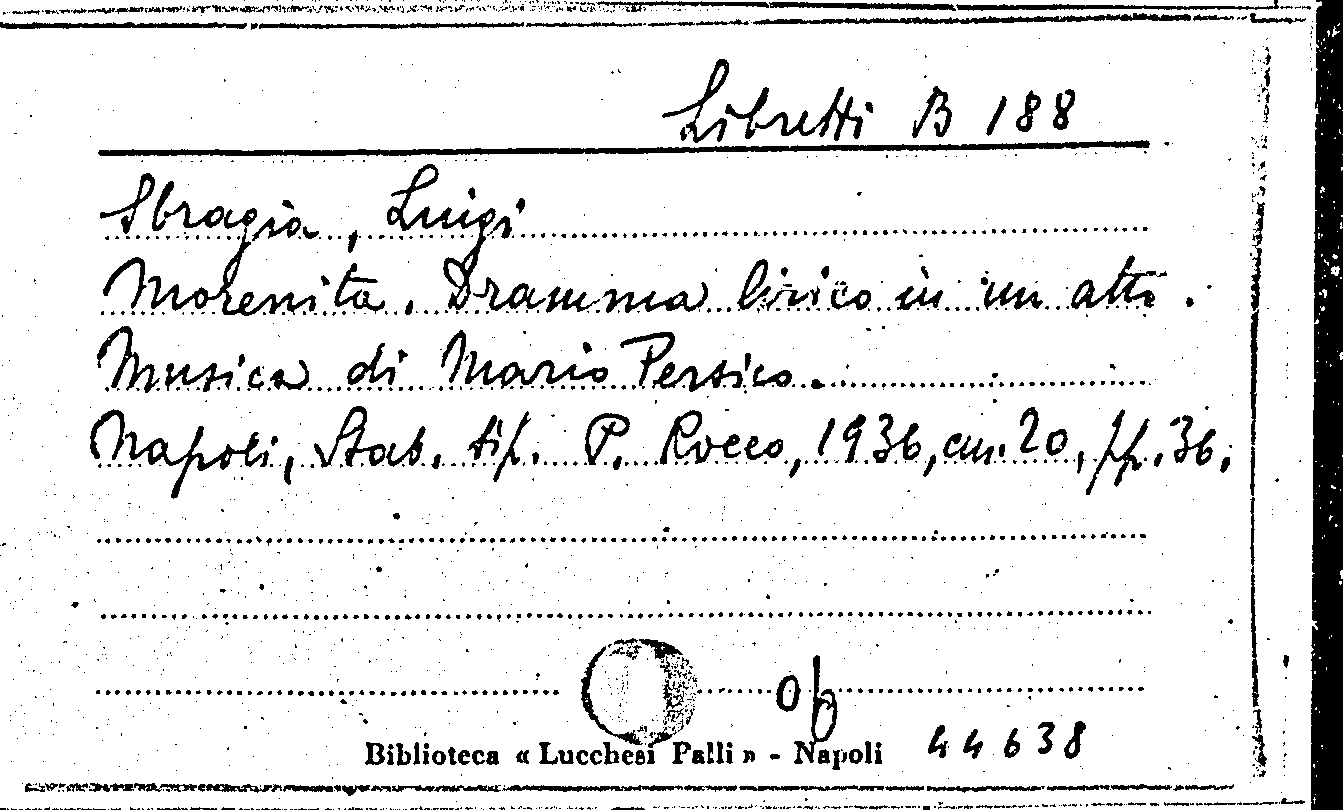 Libretti B 188
Sbragia, Luigi
Morenita. Dramma lirico in un atto.
Musica di Mario Persico.
Napoli, Stab. tip. P. Rocco, 1936, cm. 20, pp. 36.
Biblioteca « Lucchesi Palli » - Napoli 44638